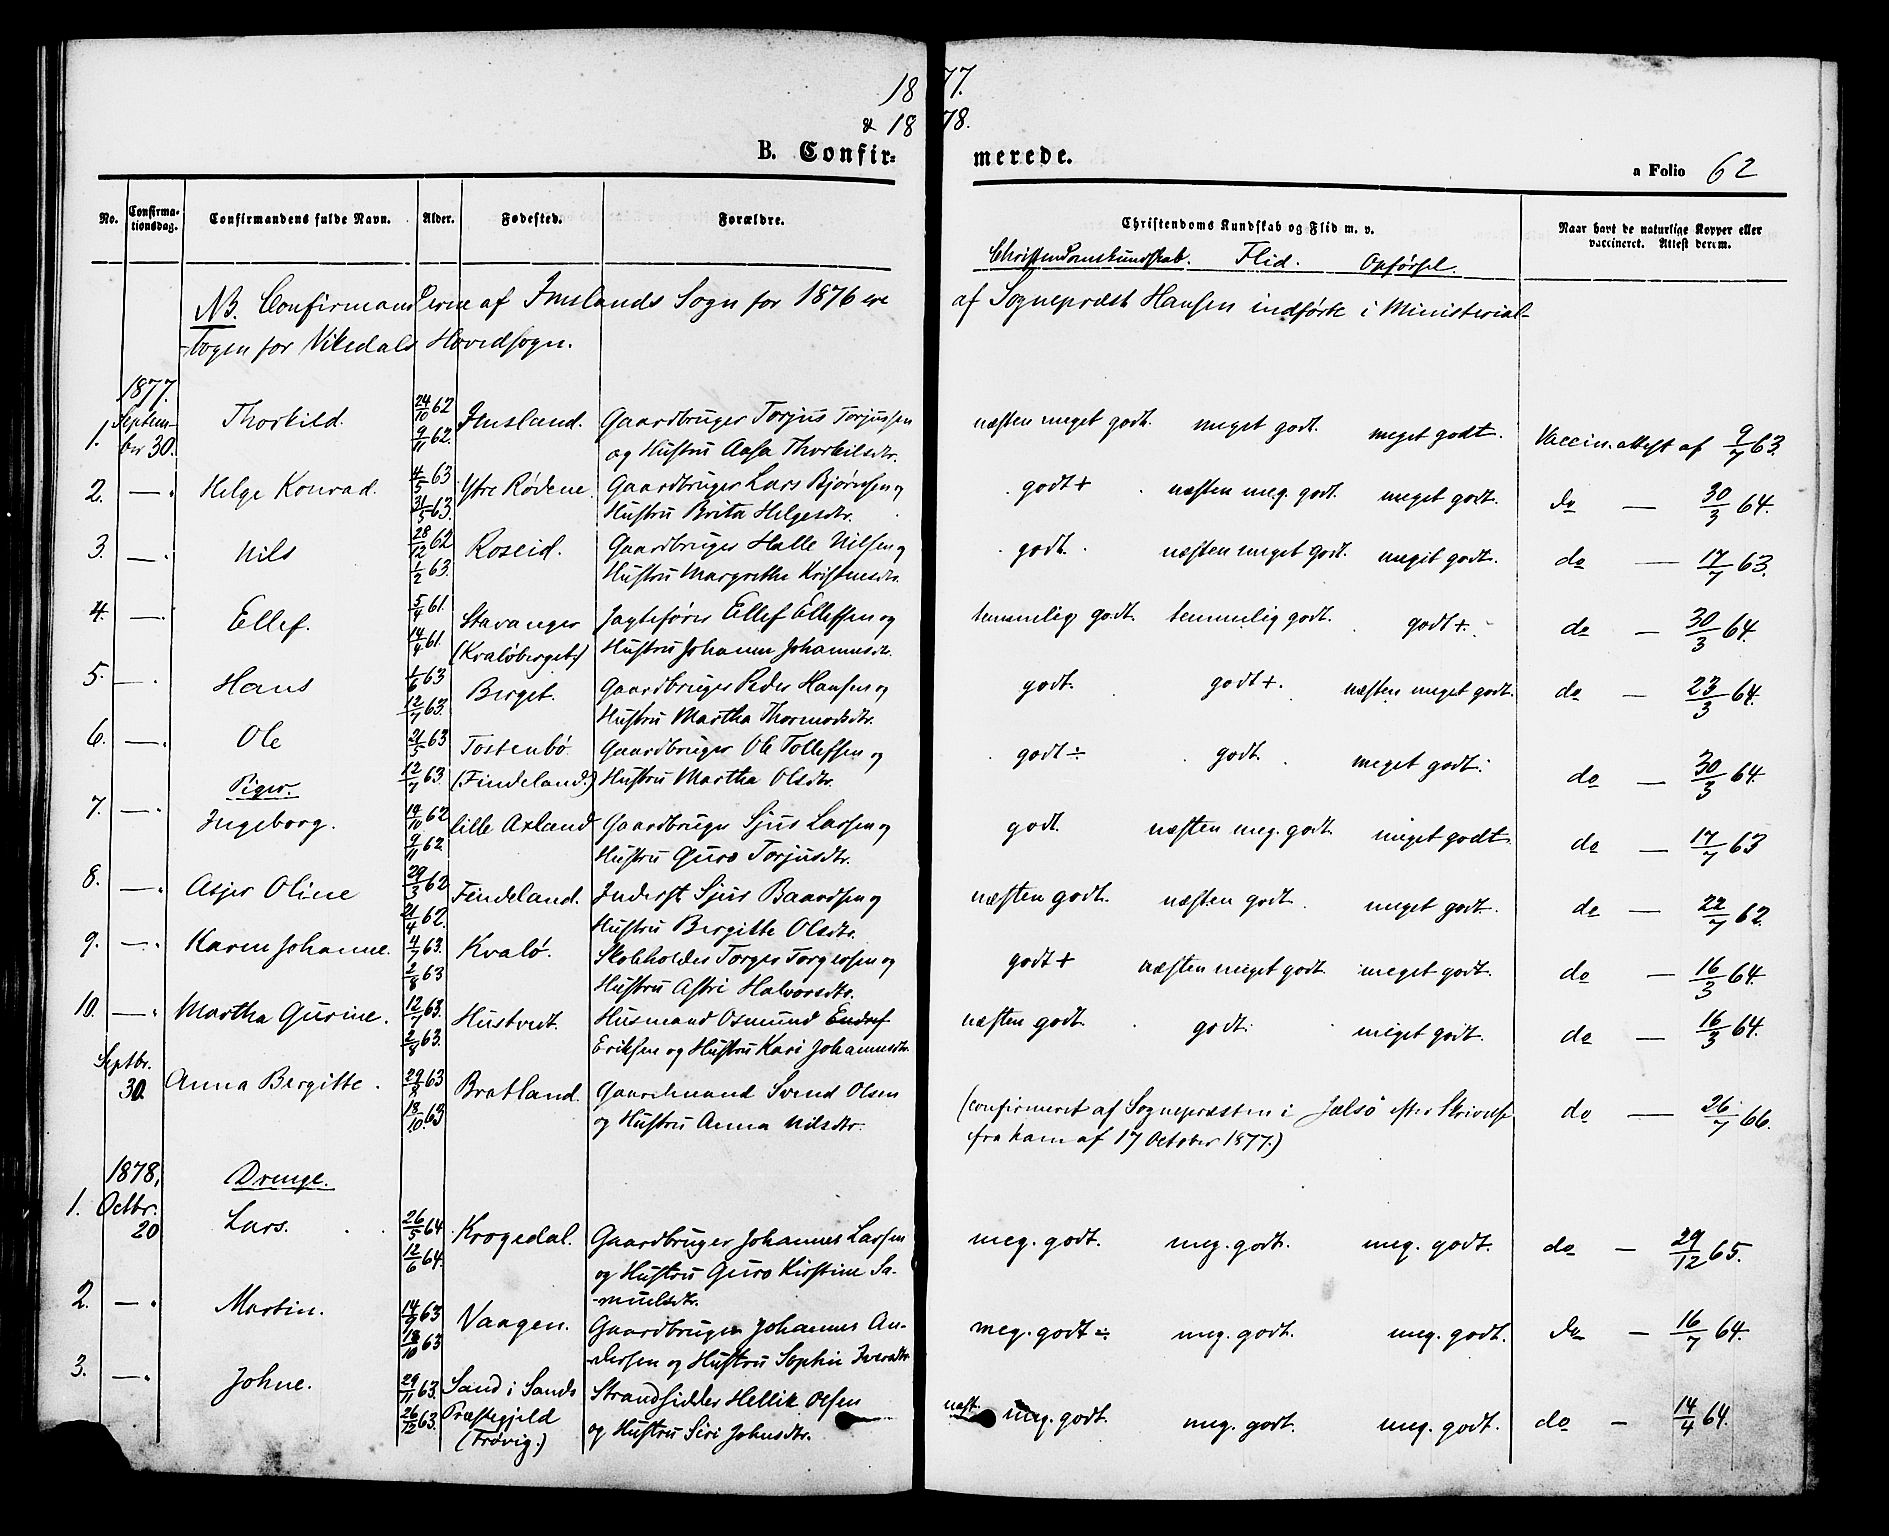 1877.
& 1878.
B. Confirmerede.
a Folio 62
No. Confirmationsdag. Confirmandens fulde Navn. Alder. Fødested. Forældre. Christendoms Kundskab og Flid m. v. Naar havt de naturlige Kopper eller vaccineret. Attest derom.
Christendomskundskab. Flid. Opførsel.
NB. Confirmanderne af Imslands Sogn for 1876 ere af Sognepræst Hansen indførte i Ministerial-
-bogen for Vikedals Hovedsogn.
1877.
1. Septem- Thorkild. 24/10 62 Imsland. Gaardbruger Torjus Torjussen næsten meget godt. meget godt. meget godt. Vaccin. attest af 9/7 63.
ber 30. 9/11 62. og Hustru Aasa Thorkilsdtr.
2. — . Helge Konrad. 4/5 63 Ystre Rødene. Gaardbruger Lars Bjørnsen og godt + næsten meg. godt. meget godt. do — 30/3 64.
31/5 63. Hustru Brita Helgesdtr.
3. — . Nils 28/12 62 Roseid. Gaardbruger Halle Nilsen og godt. næsten meget godt. meget godt. do — 17/7 63.
1/2 63. Hustru Margrethe Kristensdtr.
4. — . Ellef. 5/4 61. Stavanger Jagtefører Ellef Ellefsen og temmelig godt. temmelig godt. godt +. do — 30/3 64.
14/4 61. (Kvaløberget) Hustru Johanne Johannesdtr.
5. — . Hans 1/6 63 Berget. Gaardbruger Peder Hansen og godt. godt +. næsten meget godt. do — 23/3 64.
12/7 63. Hustru Martha Thormodsdtr.
6. — . Ole 21/5 63 Tostenbø Gaardbruger Ole Tollefsen og godt ÷ godt. meget godt. do — 30/3 64.
12/7 63. (Findeland.) Hustru Martha Olsdtr.
Piger.
7. — . Ingeborg. 14/10 62 Lille Axland Gaardbruger Sjur Larsen og godt. næsten meg. godt. meget godt. do — 17/7 63
9/11 62. Hustru Guro Torjusdtr.
8. — . Asjer Oline 29/3 62 Findeland. Inderst Sjur Baardsen og næsten godt. næsten godt. meget godt. do — 22/7 62.
21/4 62. Hustru Bergitte Olsdtr.
9. — . Karen Johanne. 4/7 63. Kvalø. Skoleholder Torger Torgersen og godt + næsten meget godt. meget godt. do — 16/3 64.
2/8 63 Hustru Astri Halvorsdtr.
10. — . Martha Gurine. 12/7 63. Hustvedt. Husmand Osmund næsten godt. godt. meget godt. do — 16/3 64.
2/8 63. Eriksen og Hustru Kari Johannesdtr.
Septbr. 30. Anna Bergitte. 29/8 63 Bratland. Gaardmand Svend Olsen (confirmeret af Sognepræsten i Jelsø efter Skrivelse do — 26/7 66.
18/10 63 og Hustru Anna Nilsdtr. fra ham af 17 October 1877.)
1878, Drenge.
1. Octbr. 20 Lars. 26/5 64 Krogedal. Gaardbruger Johannes Larsen meg. godt. meg. godt. meg. godt. do — 29/12 65.
12/6 64. og Hustru Guro Kirstine Sa-
-muelsdtr.
2. — . Martin. 14/9 63 Vaagen. Gaardbruger Johannes An- meg. godt ÷ meg. godt. meg. godt. do — 16/7 64.
18/10 63 -dersen og Hustru Sophie Iversdtr
3. — . Johne. 29/11 63. Sand i Sands Strandsidder Hellik Olsen næst. meg. godt. meg. godt. meg. godt. do — 14/4 64.
26/12 63. Præstegjeld og Hustru Siri Johnsdtr.
(Trøvig.)